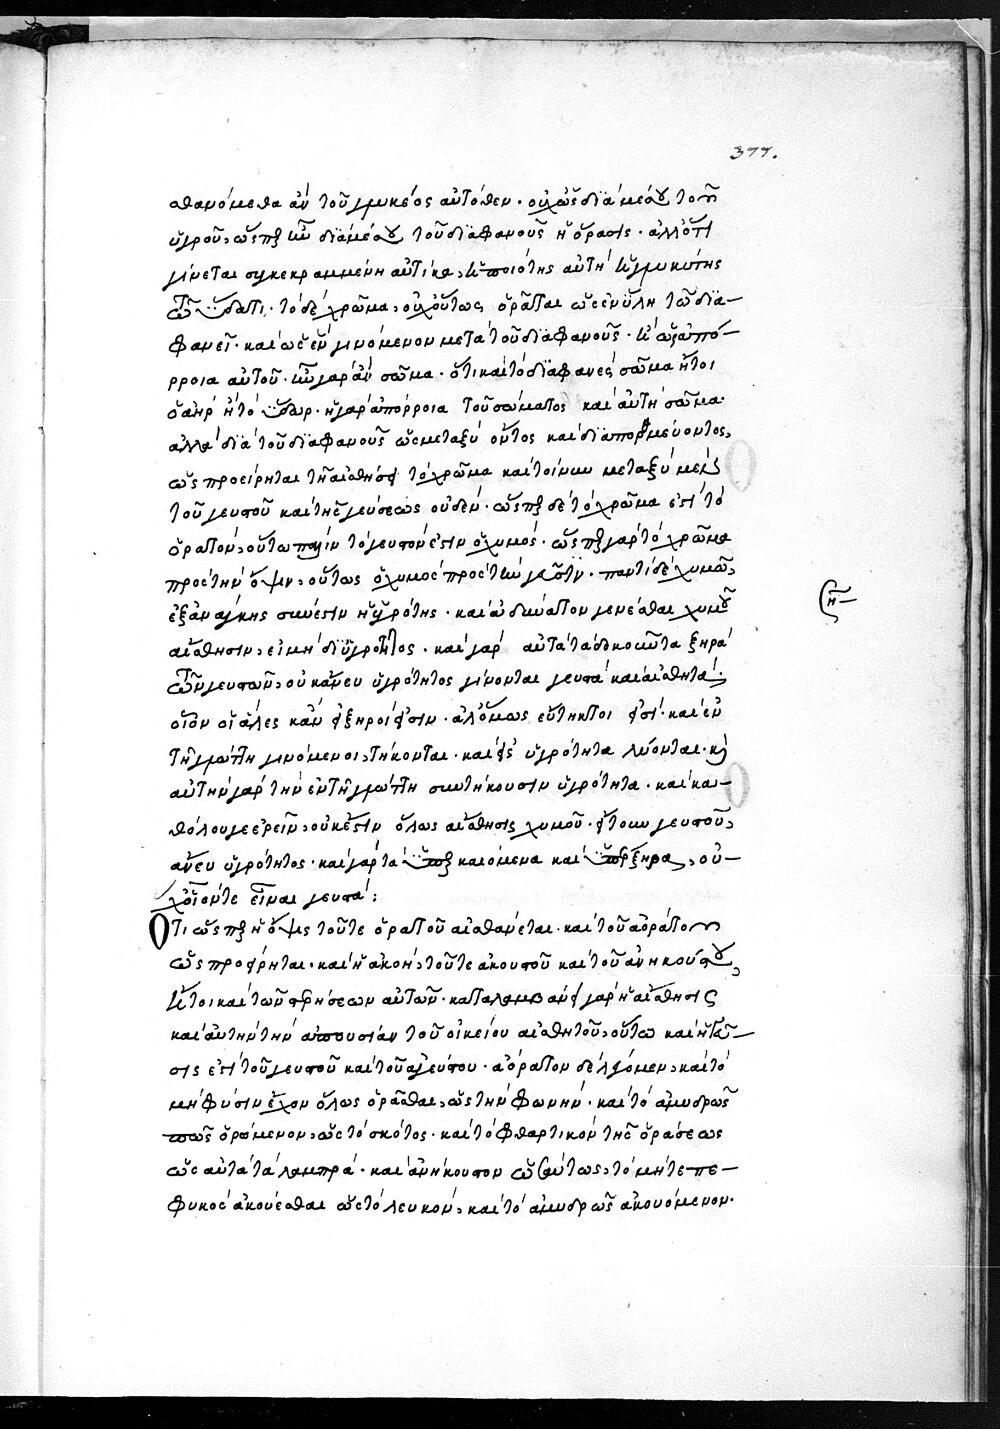 377.
σθανόμεθα ἂν τοῦ γλυκέος αὐτόθεν. οὐχ ὡς διὰ μέσου τοῦ
ὑγροῦ, ὥσπερ ἦν διὰ μέσου τοῦ διαφανοῦς ἡ ὅρασις. ἀλλ' ὅτι
γίνεται συγκεκραμμένη αὐτίκα, ἡ ποιότης αὐτὴ ἡ γλυκύτης
τῷ ὕδατι. τὸ δὲ χρῶμα, οὐχ οὕτως ὁρᾶται ὡς ἐν ὕλῃ τῷ δια-
φανεῖ. καὶ ὡς ἓν γινόμενον μετὰ τοῦ διαφανοῦς. ἢ ὡς ἀπό-
ρροια αὐτοῦ. ἦν γὰρ ἂν σῶμα. ὅτι καὶ τὸ διαφανὲς σῶμα ἤτοι
ὁ ἀὴρ ἢ τὸ ὕδωρ. ἡ γὰρ ἀπόρροια τοῦ σώματος καὶ αὐτὴ σῶμα.
ἀλλὰ διὰ τοῦ διαφανοῦς ὡς μεταξὺ ὄντος καὶ διαπορθμεύοντος,
ὡς προείρηται τῇ αἰσθήσει τὸ χρῶμα καὶ τοίνυν μεταξὺ μὲν
τοῦ γευστοῦ καὶ τῆς γεύσεως οὐδέν. ὥσπερ δὲ τὸ χρῶμα ἐστὶ τὸ
ὁρατόν, οὕτω πάλιν τὸ γευστόν ἐστιν ὁ χυμός. ὥσπερ γὰρ τὸ χρῶμα
πρὸς τὴν ὄψιν, οὕτως ὁ χυμὸς πρὸς τὴν γεῦσιν. παντὶ δὲ χυμῷ,
ἐξ ἀνάγκης σύνεστιν ἡ ὑγρότης. καὶ ἀδύνατον γενέσθαι χυμοῦ
αἴσθησιν, εἰ μὴ δι' ὑγρότητος. καὶ γὰρ αὐτὰ τὰ δοκοῦντα ξηρὰ
τῶν γευστῶν, οὐκ ἄνευ ὑγρότητος γίνονται γευστὰ καὶ αἰσθητά.
οἷον οἱ ἅλες κἂν εἰ ξηροί εἰσιν. ἀλλ' ὅμως εὔτηκτοι εἰσί. καὶ ἐν
τῇ γλώττῃ γινόμενοι, τήκονται. καὶ εἰς ὑγρότητα λύονται. καὶ
αὐτὴν γὰρ τὴν ἐν τῇ γλώττῃ συντήκουσιν ὑγρότητα. καὶ κα-
θόλου γε ἐρεῖν, οὐκ ἔστιν ὅλως αἴσθησις χυμοῦ. εἴτουν γευστοῦ,
ἄνευ ὑγρότητος. καὶ γὰρ τὰ ὑπερκαιόμενα καὶ ὑπέρξηρα, οὐ-
χ οἷόν τε εἶναι γευστά:
Ὅτι ὥσπερ ἡ ὄψις τοῦ τε ὁρατοῦ αἰσθάνεται. καὶ τοῦ ἀοράτου
ὡς προείρηται. καὶ ἡ ἀκοὴ, τοῦ τε ἀκουστοῦ καὶ τοῦ ἀνηκούστου,
ἤτοι καὶ τῶν στερήσεων αὐτῶν. καταλαμβάνει γὰρ ἡ αἴσθησις
καὶ αὐτὴν τὴν ἀπουσίαν τοῦ οἰκείου αἰσθητοῦ, οὕτω καὶ ἡ γεῦ-
σις ἐστὶ τοῦ γευστοῦ καὶ τοῦ ἀγεύστου. ἀόρατον δὲ λέγομεν, καὶ τὸ
μὴ φύσιν ἔχον ὅλως ὁρᾶσθαι, ὡς τὴν φωνήν. καὶ τὸ ἀμυδρῶς
πως ὁρώμενον, ὡς τὸ σκότος. καὶ τὸ φθαρτικὸν τῆς ὁράσεως
ὡς αὐτὰ τὰ λαμπρά. καὶ ἀνήκουστον ὡσαύτως, τὸ μήτε πε-
φυκὸς ἀκούεσθαι ὡς τὸ λευκόν, καὶ τὸ ἀμυδρῶς ἀκουόμενον.